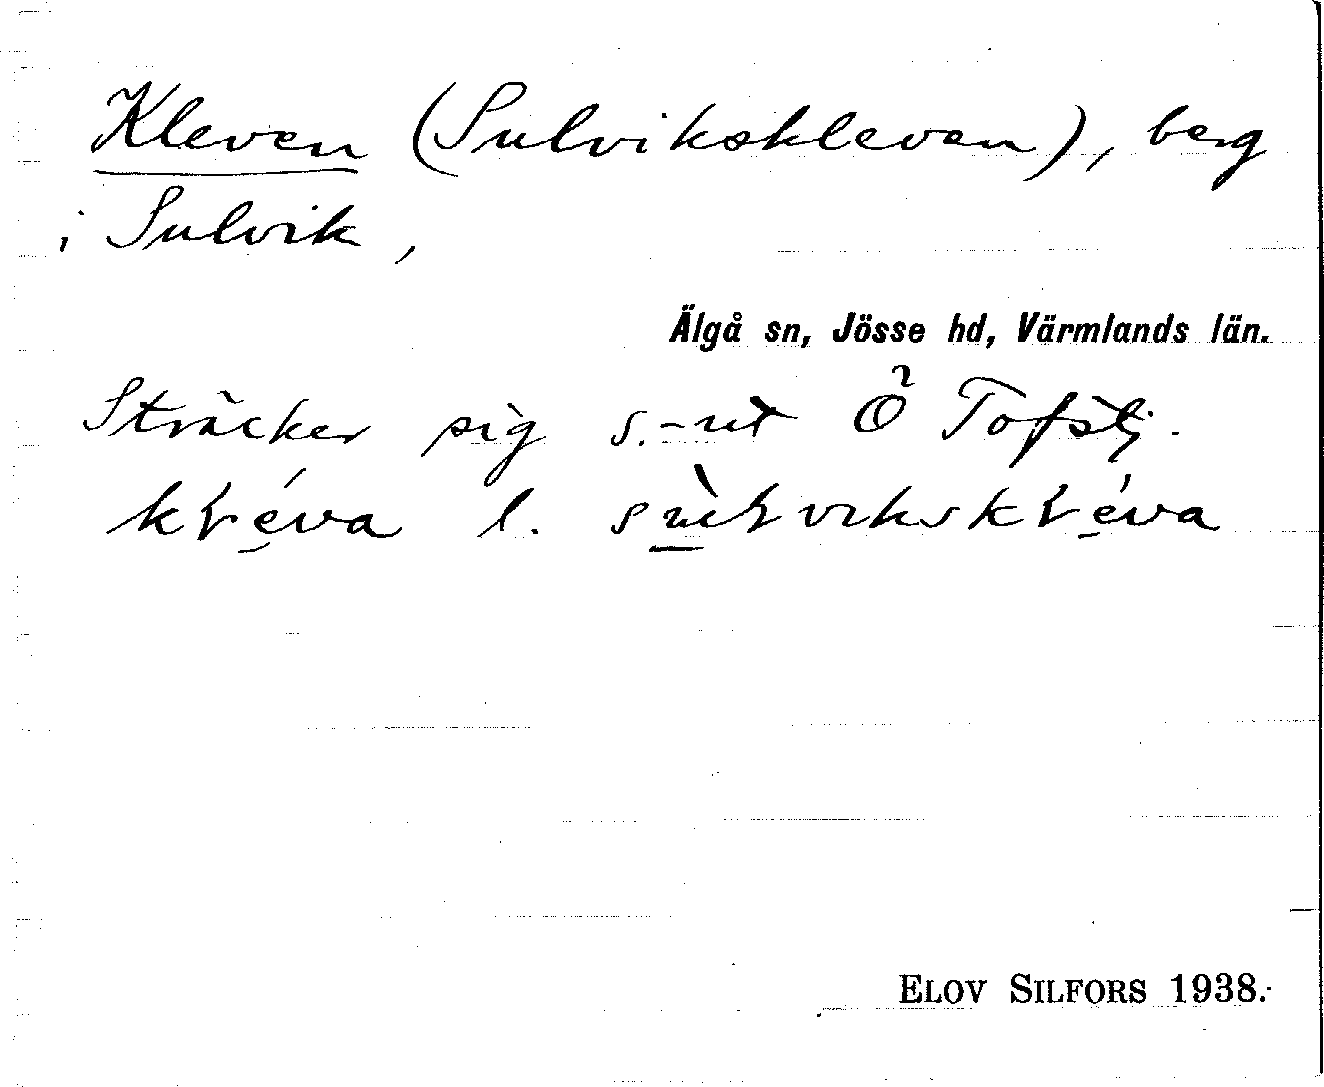 Kleven (Sulvikskleven), berg
i Sulvik,
Älgå sn, Jösse hd, Värmlands län.
Sträcker sig s.-ut Ö Tofstj.
l.
ELOV SILFORS 1938.